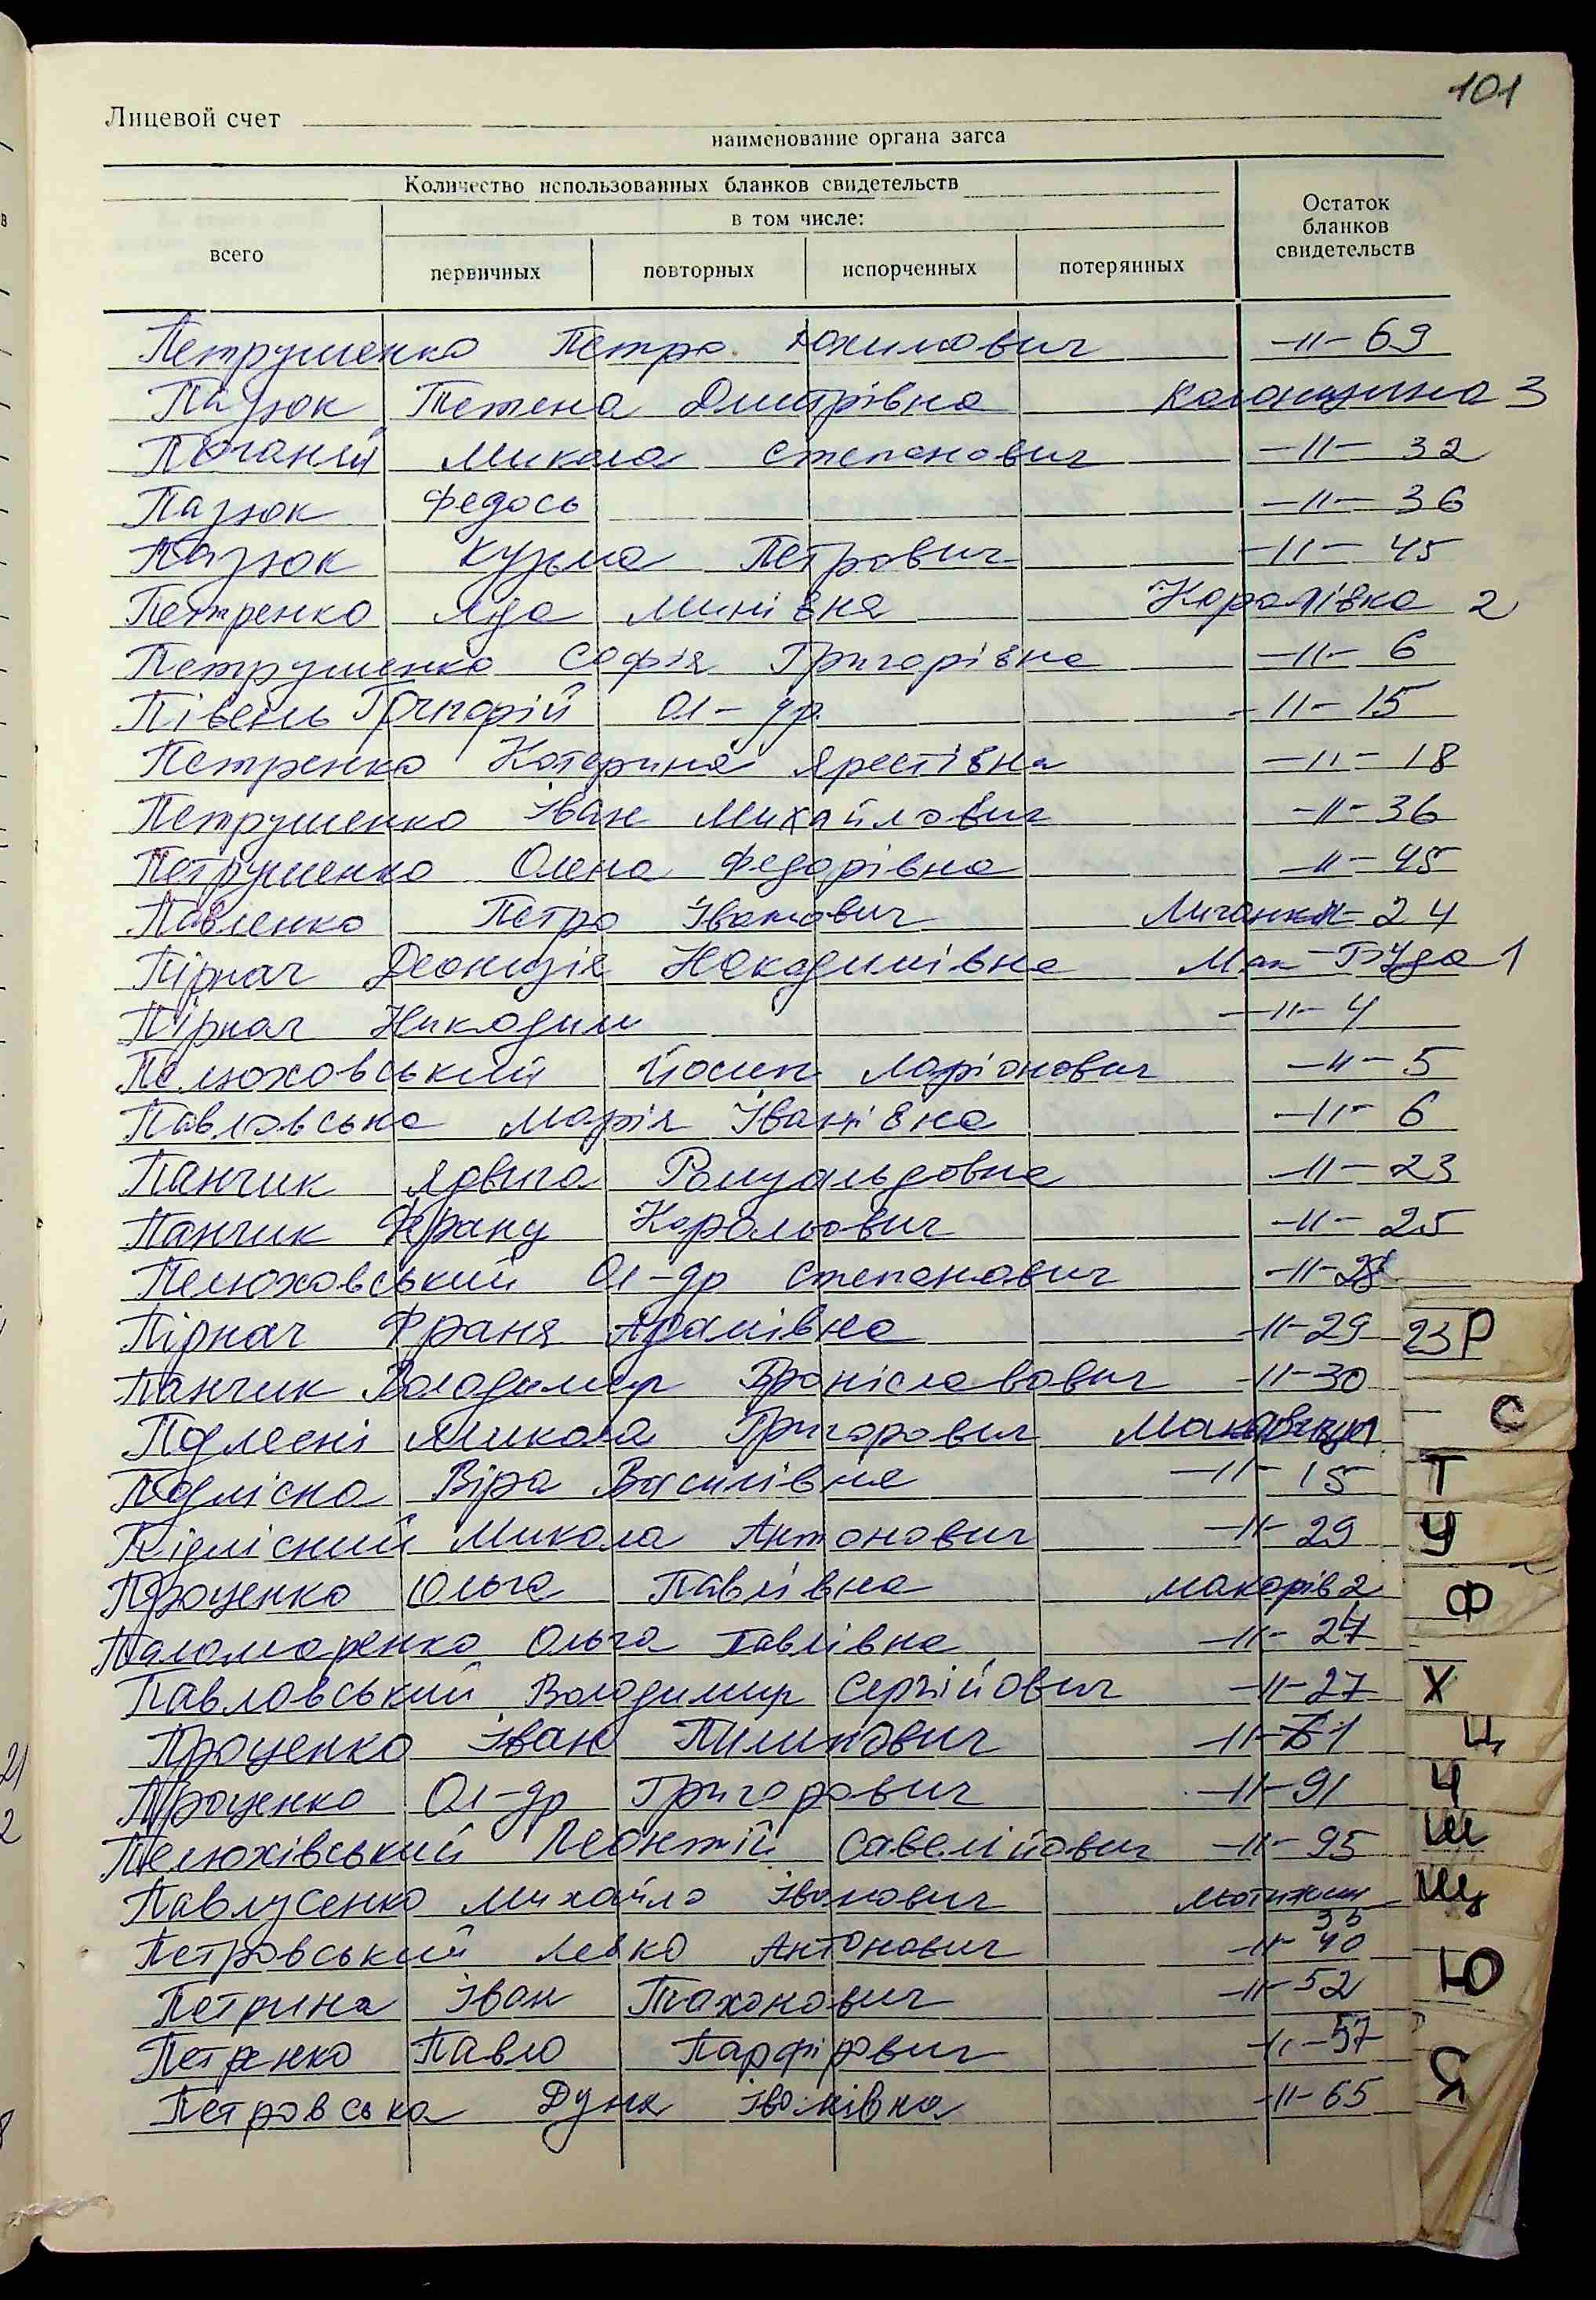 101
Лицевой счет
наименование органа загса
Количество использованных бланков свидетельств
Остаток бланков свидетельств
всего
в том числе:
первичных повторных испорченных потерянных
Петрушенко Петро Юхимович -11- 69
Пазюк Тетена Дмитрівна Колонщина 3
Поганий Микола Степанович -11- 32
Пазюк Федось -11- 36
Пазюк Кузьма Петрович -11- 45
Петренко Яда Минівна Королівка 2
Петрушенко Софія Григорівна -11- 6
Півень Григорій Ол-др -11- 15
Петренко Котерина Арестівна -11- 18
Петрушенко Іван Михайлович -11- 36
Петрушенко Олена Федорівна -11- 45
Павленко Петро Іванович 24
Пірнач Деонизія Някодимівна Мак-Буда 1
Пірнач Никодим -11- 4
Пелюховський Йосип Ларіонович -11- 5
Павловська Марія Іванівна -11- 6
Панчик Ядвига Ромуальдовна -11- 23
Панчик Франц Карольович -11- 25
Пелюховський Ол-др Степанович -11- 28
Пірнач Франя Адамівна -11- 29
Панчик Володимир Броніславович -11- 30
Подлесні Микола Григорович
Подлісна Віра Василівна -11- 15
Підлісний Микола Антонович -11- 29
Проценко Ольга Павлівна Макарів 2
Паламаренко Ольга Павлівна -11- 24
Павловський Володимир Сергійович -11- 27
Проценко Іван Пилипович -11- 61
Проценко Ол-др Григорович -11- 91
Пелюхівський Леонтій Савелійович -11- 95
Павлусенко Михайло Іванович Мотижин 35
Петровський Левко Антонович -11- 40
Петрина Іван Тахонович -11- 52
Петренко Павло Парфірович -11- 57
Петровська Дуня Іванівна -11- 65
23 Р
С
Т
У
Ф
Х
Ц
Ч
Ш
Щ
Ю
Я